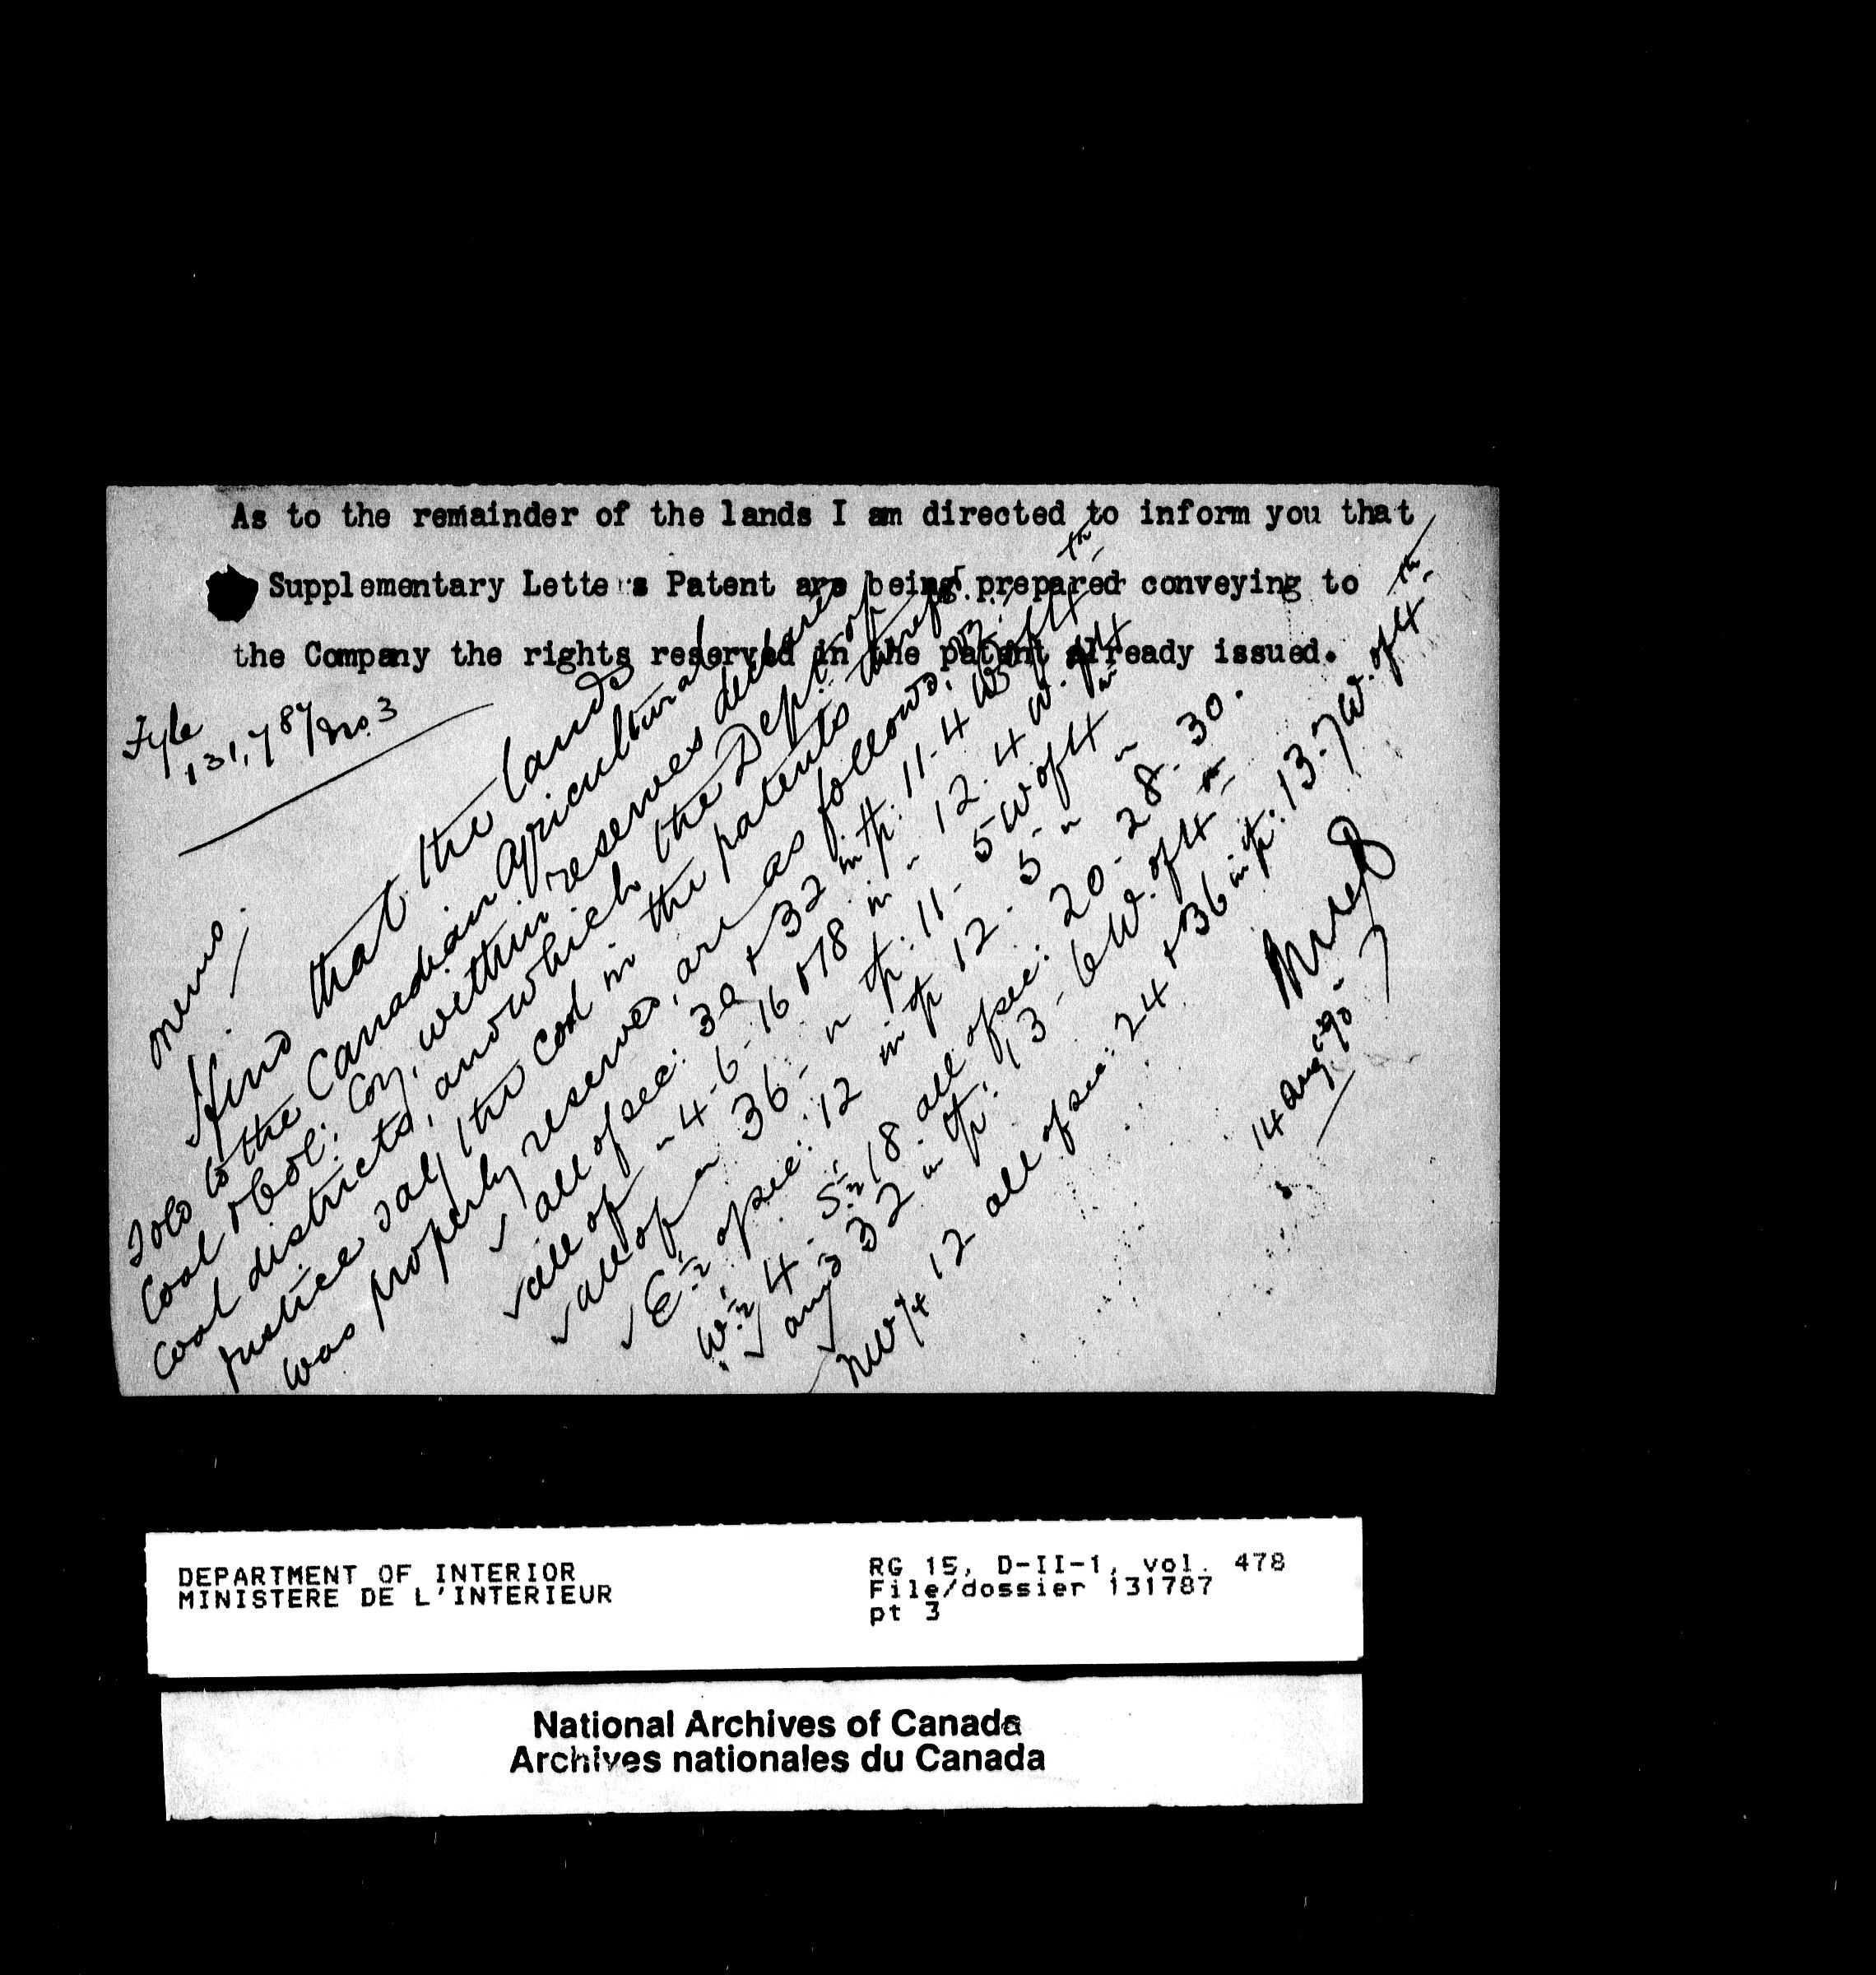 As to the remainder of the lands I am directed to inform you that
Supplementary Letters Patent are being prepared conveying to
the Company the rights reserved in the patent already issued.
Fyle
131,787/No. 3
Memo,
I find that the lands
sold to the Canadian Agricultural
Coal & Col: Coy, within reserves declared
Coal districts, and which the Dept. of
Justice say, the coal in the patents therefor
was properly reserved, are as follows, viz:
all of sec: 30 & 32 in tp. 11-4 W of 4th
all of " 4-6-16 & 18 in " 12.4 W. of 4
all of " 36 - " tp: 11-5 W of 4 "
E½ of sec: 12 in tp 12.5 " "
W½ 4. S½ 18 all of sec: 20-28-30.
and 32 in tp: 13-6 W. of 4th
NW¼ 12 all of sec: 24 & 36 in tp: 13-7 W. of 4th
14 Aug '90
DEPARTMENT OF INTERIOR
MINISTERE DE L'INTERIEUR
RG 15, D-II-1, vol. 478
File/dossier 131787
pt 3
National Archives of Canada
Archives nationales du Canada